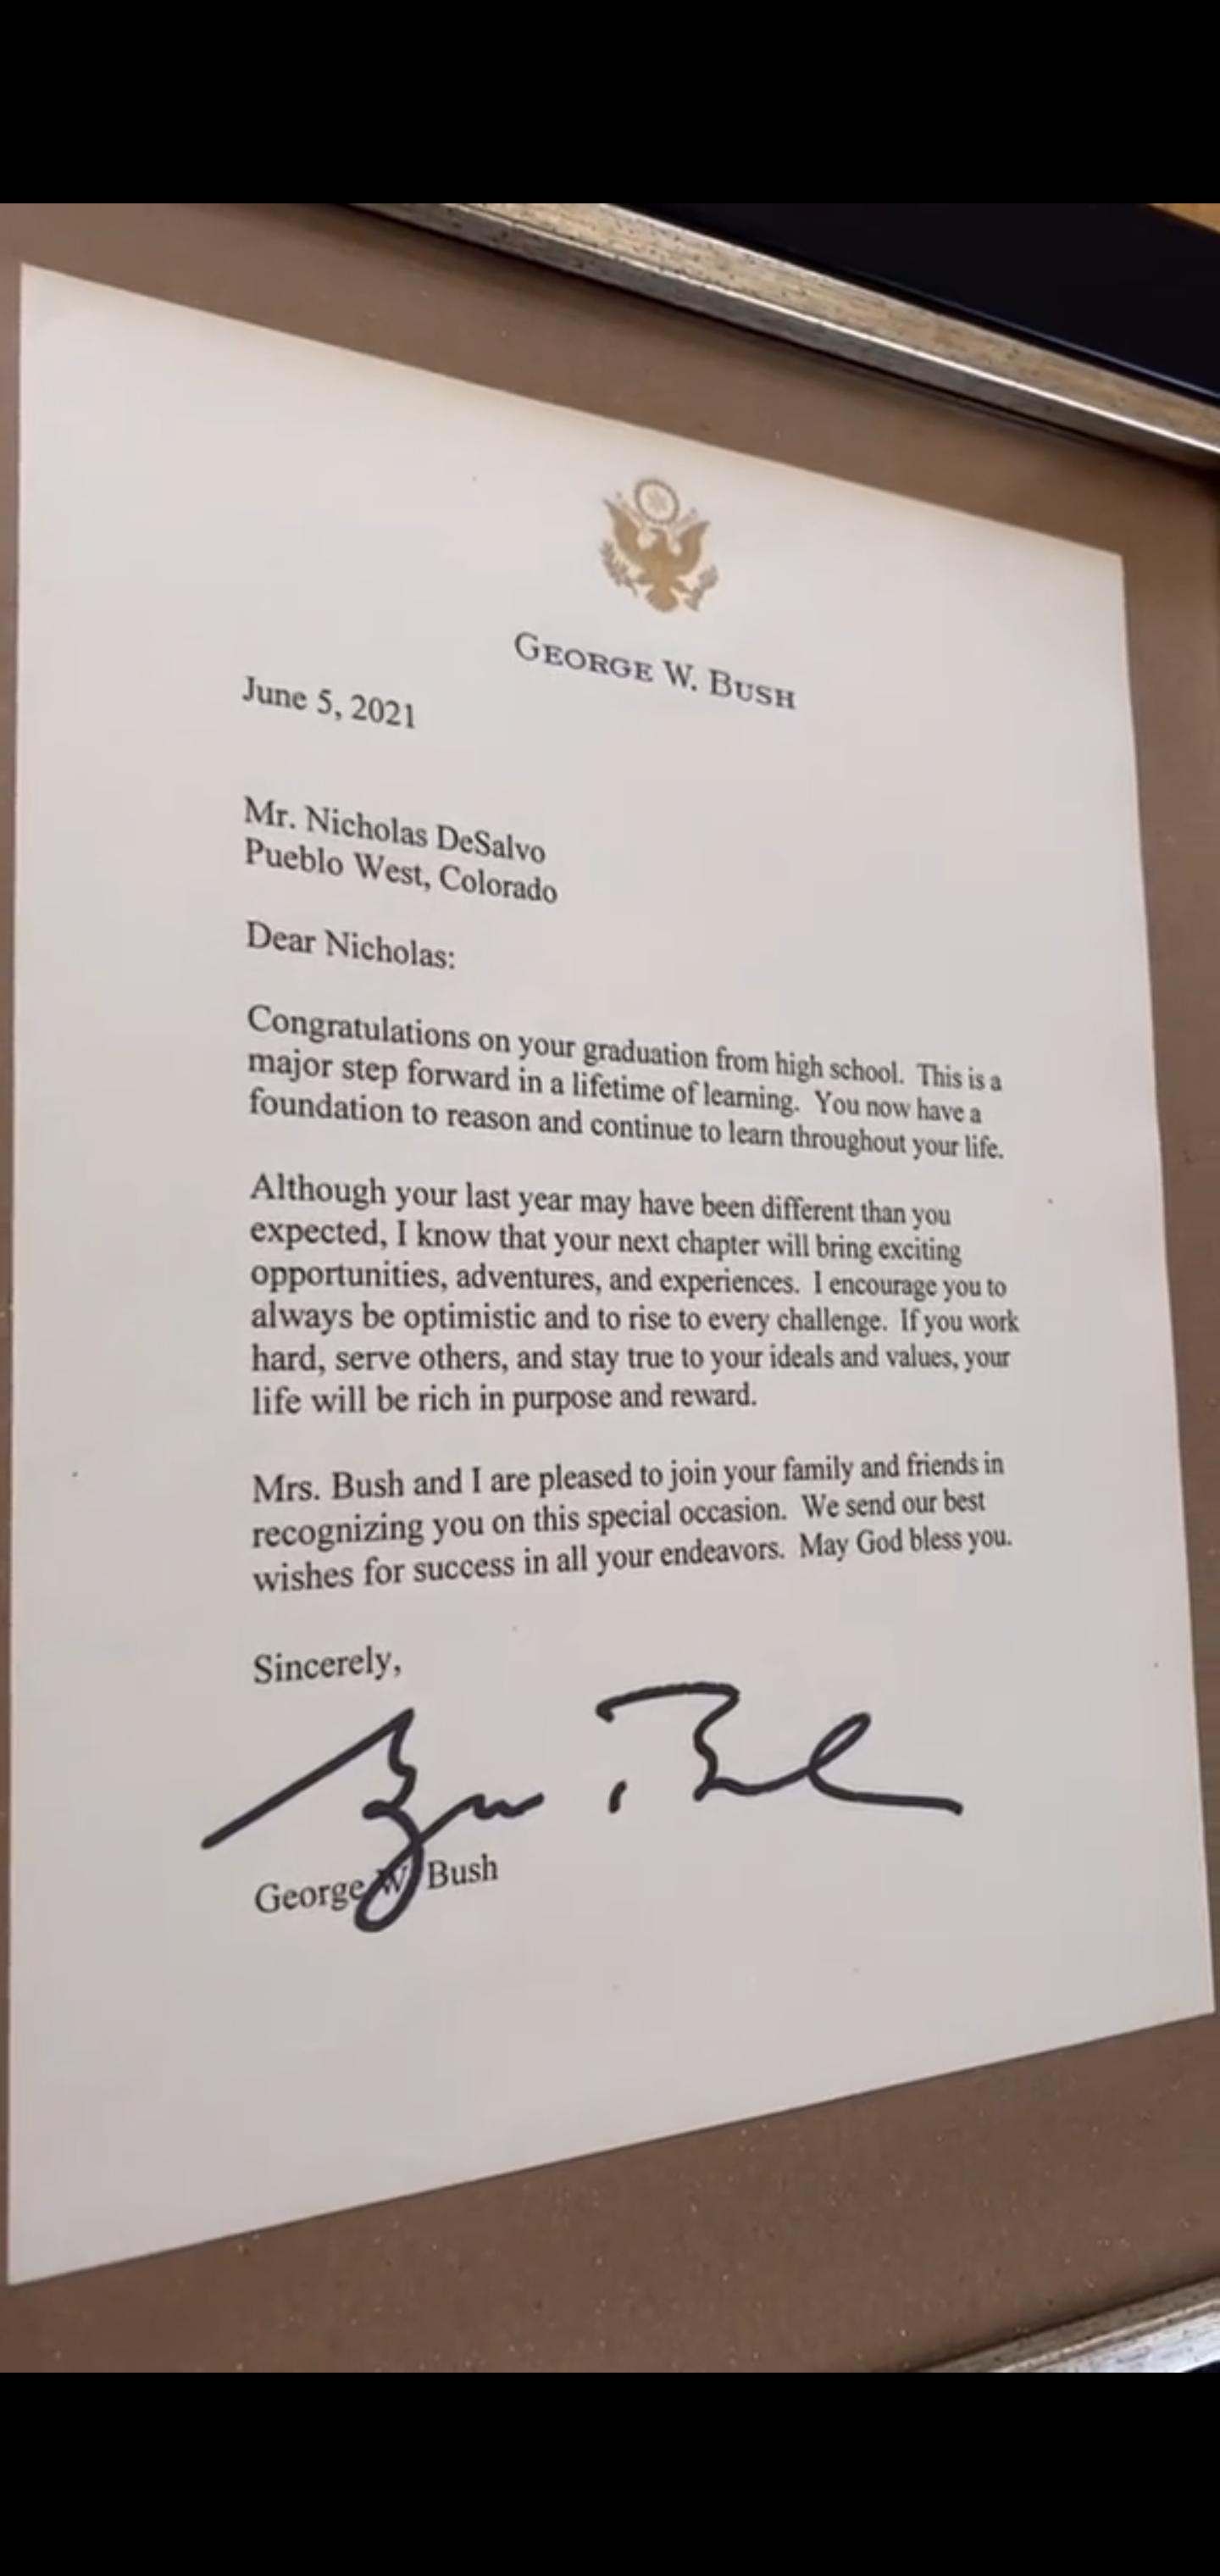 GEORGE W. BUSH
June 5, 2021
Mr. Nicholas DeSalvo
Pueblo West, Colorado
Dear Nicholas:
Congratulations on your graduation from high school. This is a
major step forward in a lifetime of learning. You now have a
foundation to reason and continue to learn throughout your life.
Although your last year may have been different than you
expected, I know that your next chapter will bring exciting
opportunities, adventures, and experiences. I encourage you to
always be optimistic and to rise to every challenge. If you work
hard, serve others, and stay true to your ideals and values, your
life will be rich in purpose and reward.
Mrs. Bush and I are pleased to join your family and friends in
recognizing you on this special occasion. We send our best
wishes for success in all your endeavors. May God bless you.
Sincerely,
George W. Bush